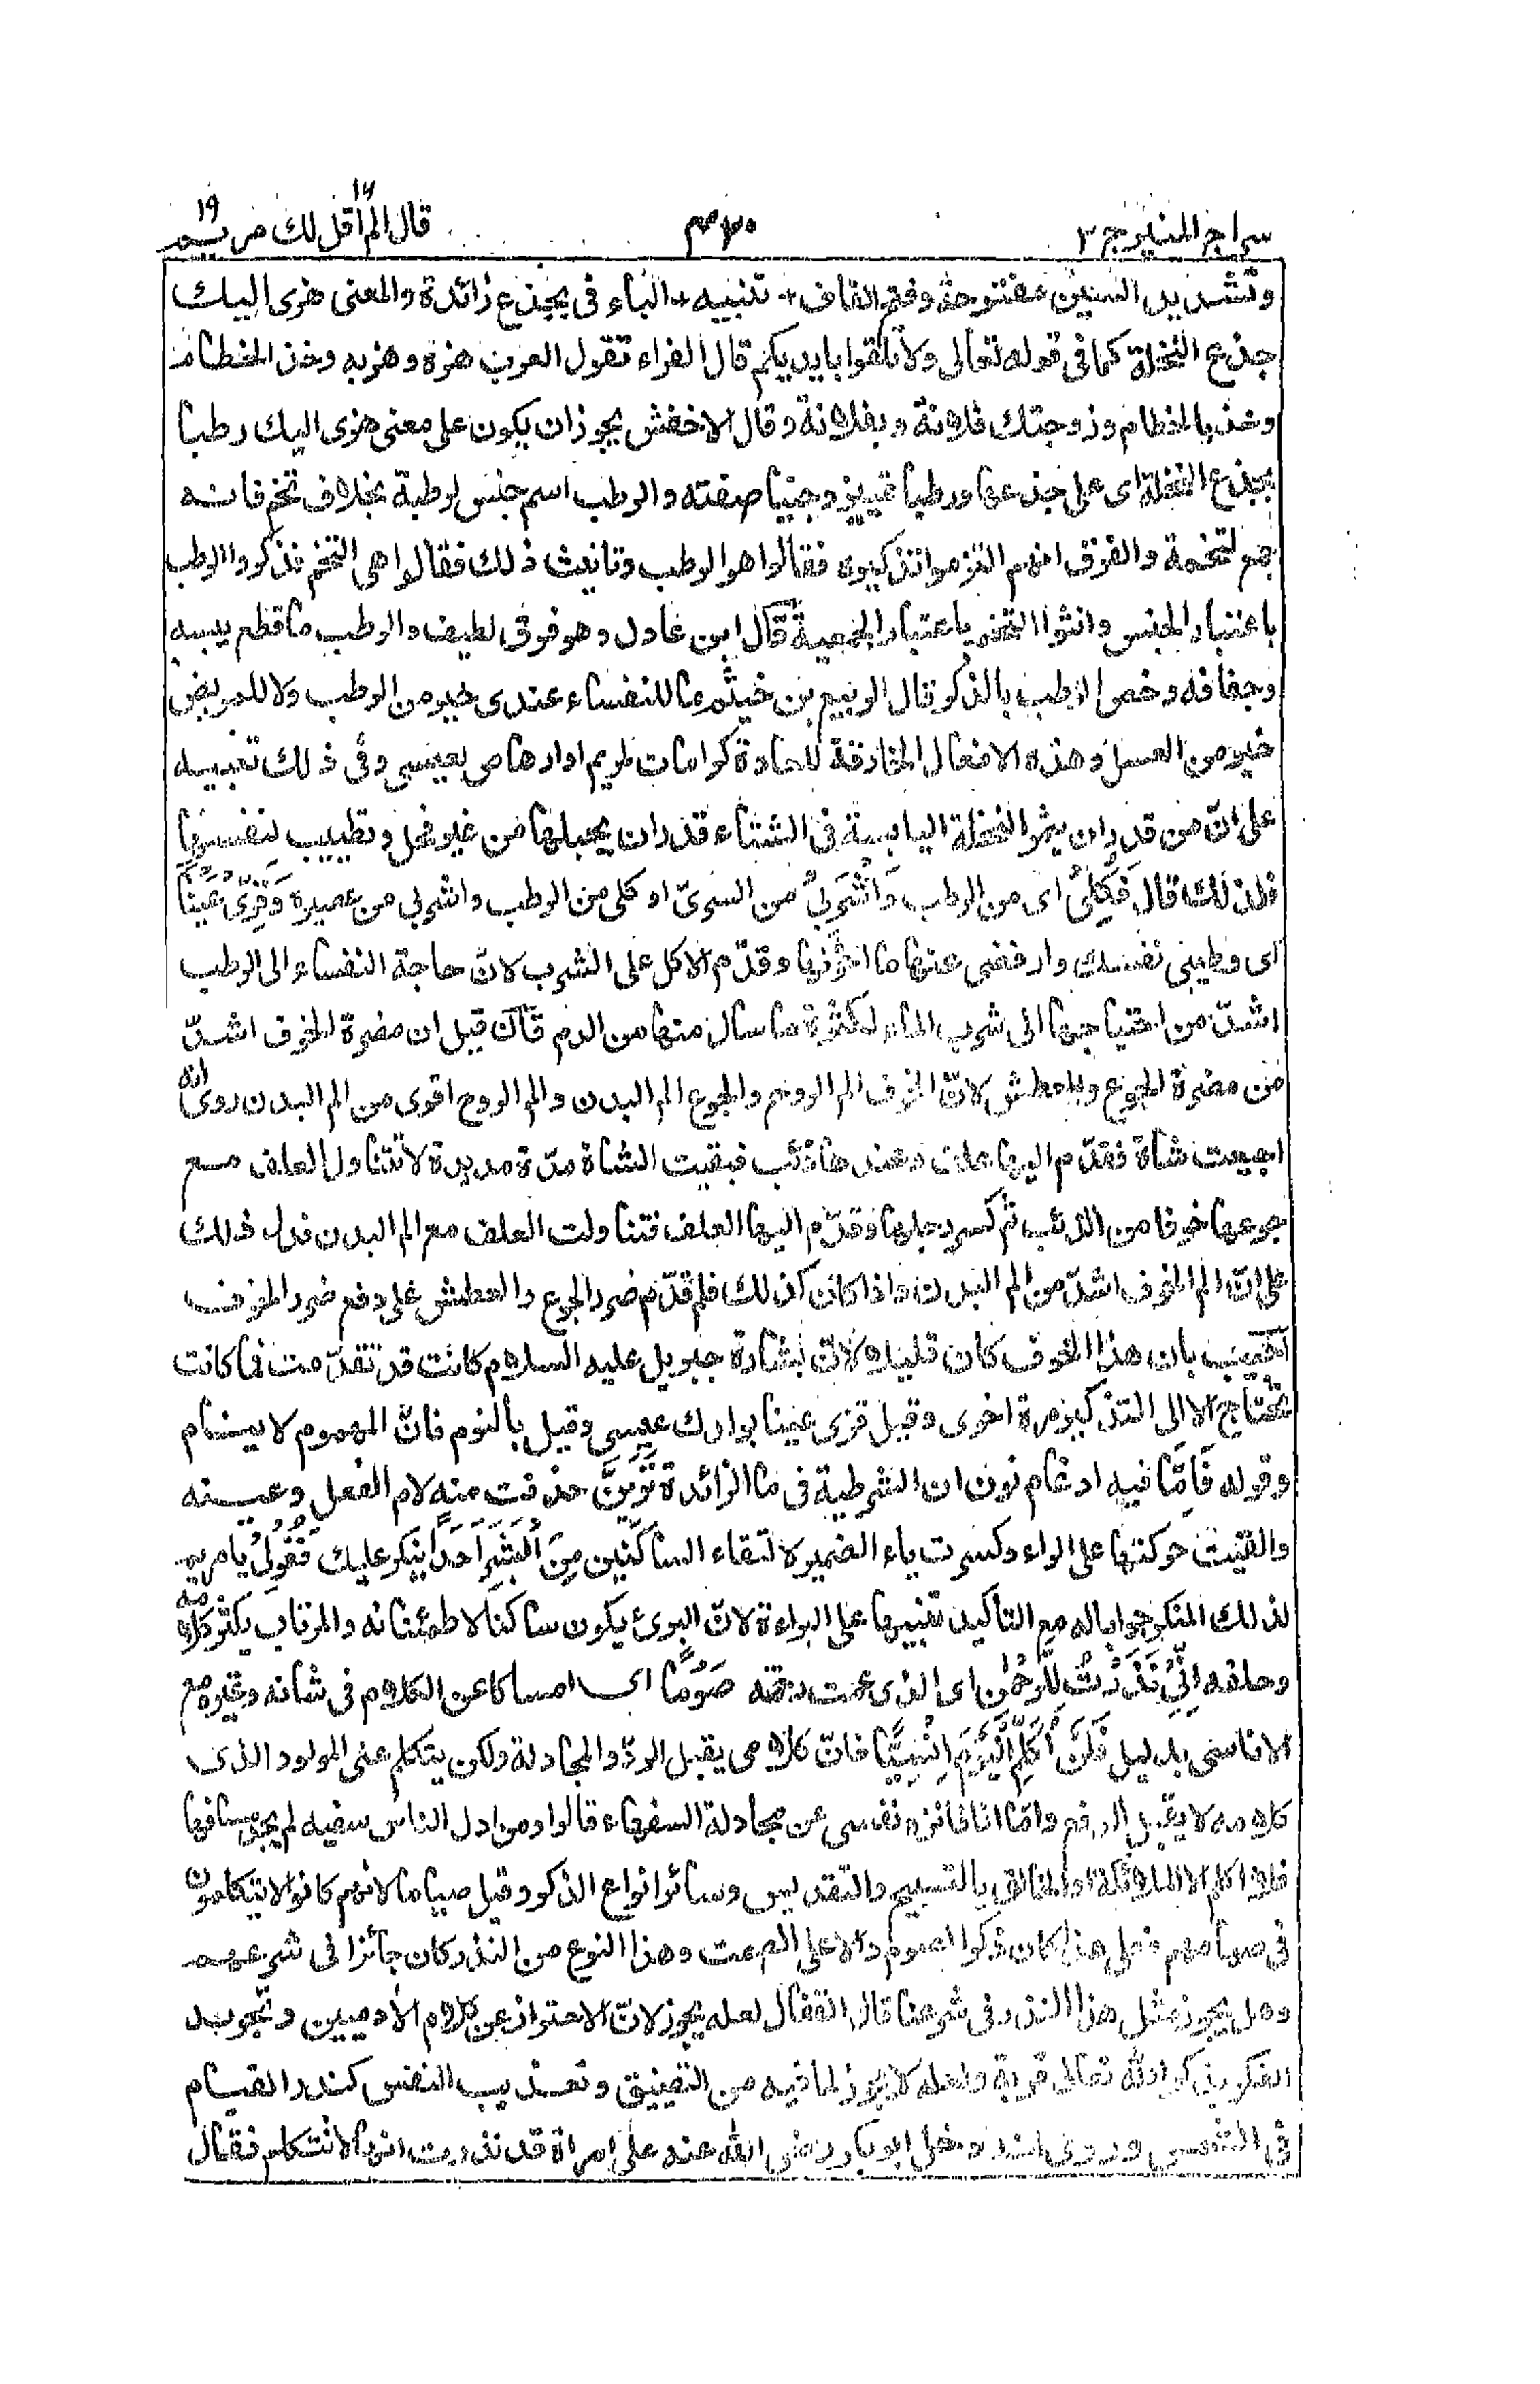 سراج المنير ج ٣
٤٢٠
قال الم اقل لك ١٦
مريم ١٩
وتشديد السين مفتوحة وفتح القاف تنبيه الباء فى بجذع زائدة والمعنى هزى اليك
جذع النخلة كما فى قوله تعالى ولا تلقوا بايديكم قال الفراء تقول العرب هزه وهز به وخذ الخطام
وخذ بالخطام وزوجتك فلانة وبفلانة وقال الاخفش يجوز ان يكون على معنى هزى اليك رطبا
بجذع النخلة اى على جذعها ورطبا تمييز وجنيا صفته والرطب اسم جنس لرطبة بخلاف تخم فانه
جمع لتخمة والفرق انهم التزموا تذكيره فقالوا هو الرطب وتانيث ذلك فقالوا هى التخم فذكروا الرطب
باعتبار الجنس وانثوا التخم باعتبار الجمعية قال ابن عادل وهو فرق لطيف والرطب ما قطع قبل يبسه
وجفافه وخص الرطب بالذكر قال الربيع بن خيثم ما للنفساء عندى خير من الرطب ولا للمريض
خير من العسل وهذه الافعال الخارقة للعادة كرامات لمريم او ارهاص لعيسى وفى ذلك تنبيه
على ان من قدر ان يثمر النخلة اليابسة فى الشتاء قدر ان يحبلها من غير فحل وتطييب لنفسها
فلذلك قال فَكُلِىْ اى من الرطب وَاشْرَبِىْ من السرىّ او كلى من الرطب واشربى من عصيره وَقَرِّىْ عَيْنًا
اى وطيبى نفسك وارفضى عنها ما احزنها وقدّم الاكل على الشرب لانّ حاجة النفساء الى الرطب
اشدّ من احتياجها الى شرب الماء لكثرة ما سال منها من الدم فان قيل ان مضرة الخوف اشدّ
من مضرة الجوع والعطش لانّ الخوف الم الروح والجوع الم البدن والم الروح اقوى من الم البدن روى انه
اجيعت شاة فقدّم اليها علف وعندها ذئب فبقيت الشاة مدّة مديدة لا تتناول العلف مع
جوعها خوفا من الذئب ثم كسر رجلها وقدّم اليها العلف فتناولت العلف مع الم البدن فدل ذلك
على انّ الم الخوف اشدّ من الم البدن واذا كان كذلك فلم قدّم ضرر الجوع والعطش على دفع ضرر الخوف
اجيب بان هذا الخوف كان قليلا لانّ بشارة جبريل عليه السلام كانت قد تقدّمت فما كانت
تحتاج الا الى التذكير مرة اخرى وقيل قرّى عينا بولدك عيسى وقيل بالنوم فانّ المهموم لا ينام
وقوله فَاِمَّا فيه ادغام نون ان الشرطية فى ما الزائدة تَرَيِنَّ حذفت منه لام الفعل وعينه
والقيت حركتها على الراء وكسرت ياء الضمير لالتقاء الساكنين مِنَ الْبَشَرِ اَحَدًا ينكر عليك فَقُوْلِىْ يا مريم
لذلك المنكر جوابا له مع التاكيد تنبيها على البراءة لانّ البرئ يكون ساكنا لاطمئنانه والمرتاب يكثر كلامه
وحلفه اِنِّىْ نَذَرْتُ لِلرَّحْمٰنِ اى الذى عمت رحمته صَوْمًا اى امساكا عن الكلام فى شانه وغيره مع
الاناسى بدليل فَلَنْ اُكَلِّمَ الْيَوْمَ اِنْسِيًّا فانّ كلامى يقبل الردّ والمجادلة ولكن يتكلم عنى المولود الذى
كلامه لا يقبل الدفع وامّا انا فانزه نفسى عن مجادلة السفهاء قالوا ومن اذل الناس سفيه لم يجد مسافها
فلا اكلم الا الملائكة او الخالق بالتسبيح والتقديس وسائر انواع الذكر وقيل صياما لانهم كانوا لا يتكلمون
فى صيامهم فعلى هذا كان ذكر الصوم دالا على الصمت وهذا النوع من النذر كان جائزا فى شرعهم
وهل يجوز مثل هذا النذر فى شرعنا قال القفال لعله يجوز لانّ الاحتراز عن كلام الآدميين وتجريد
الفكر بذكر الله تعالى قربة ولعله لا يجوز لما فيه من التضييق وتعذيب النفس كنذر القيام
فى الشمس وروى انه دخل ابو بكر رضى الله عنه على امراة قد نذرت انها لا تتكلم فقال